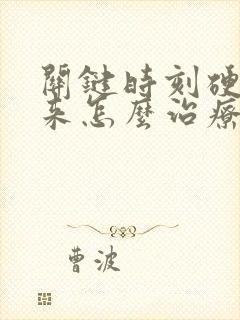 關鍵時刻硬
來怎麼治療
曹波